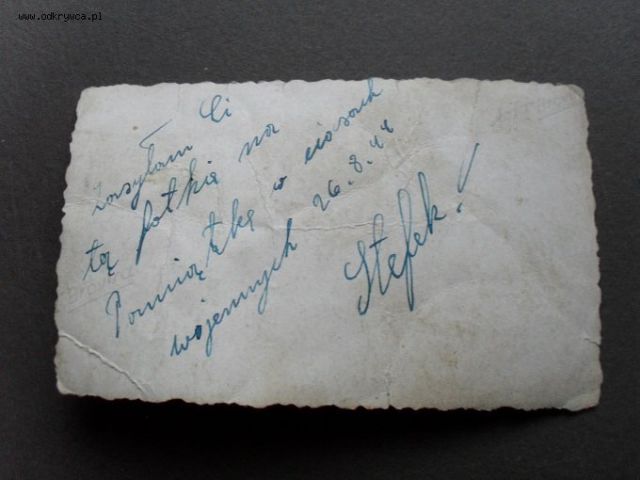 www.odkrywca.pl
Zasyłam Ci
tą fotkię na
Pomiątkę w ciasach
wojennych 26.8.44
Stefek!